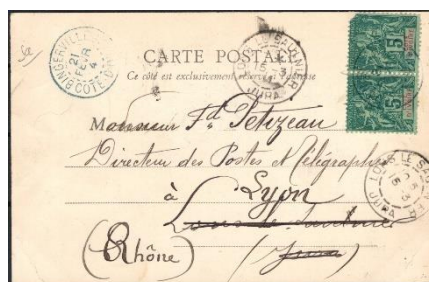 BINGERVILLE
21
FEVR
4
COTE D'
CARTE POSTALE
Ce côté est exclusivement réservé à l'adresse
LONS-LE-SAUNIER
JURA
5
5
Monsieur Fd Petizeau
Directeur des Postes et Télégraphes
à Lyon
Lons le Saunier
(Rhône) (Jura)
LONS-LE-SAUNIER
JURA